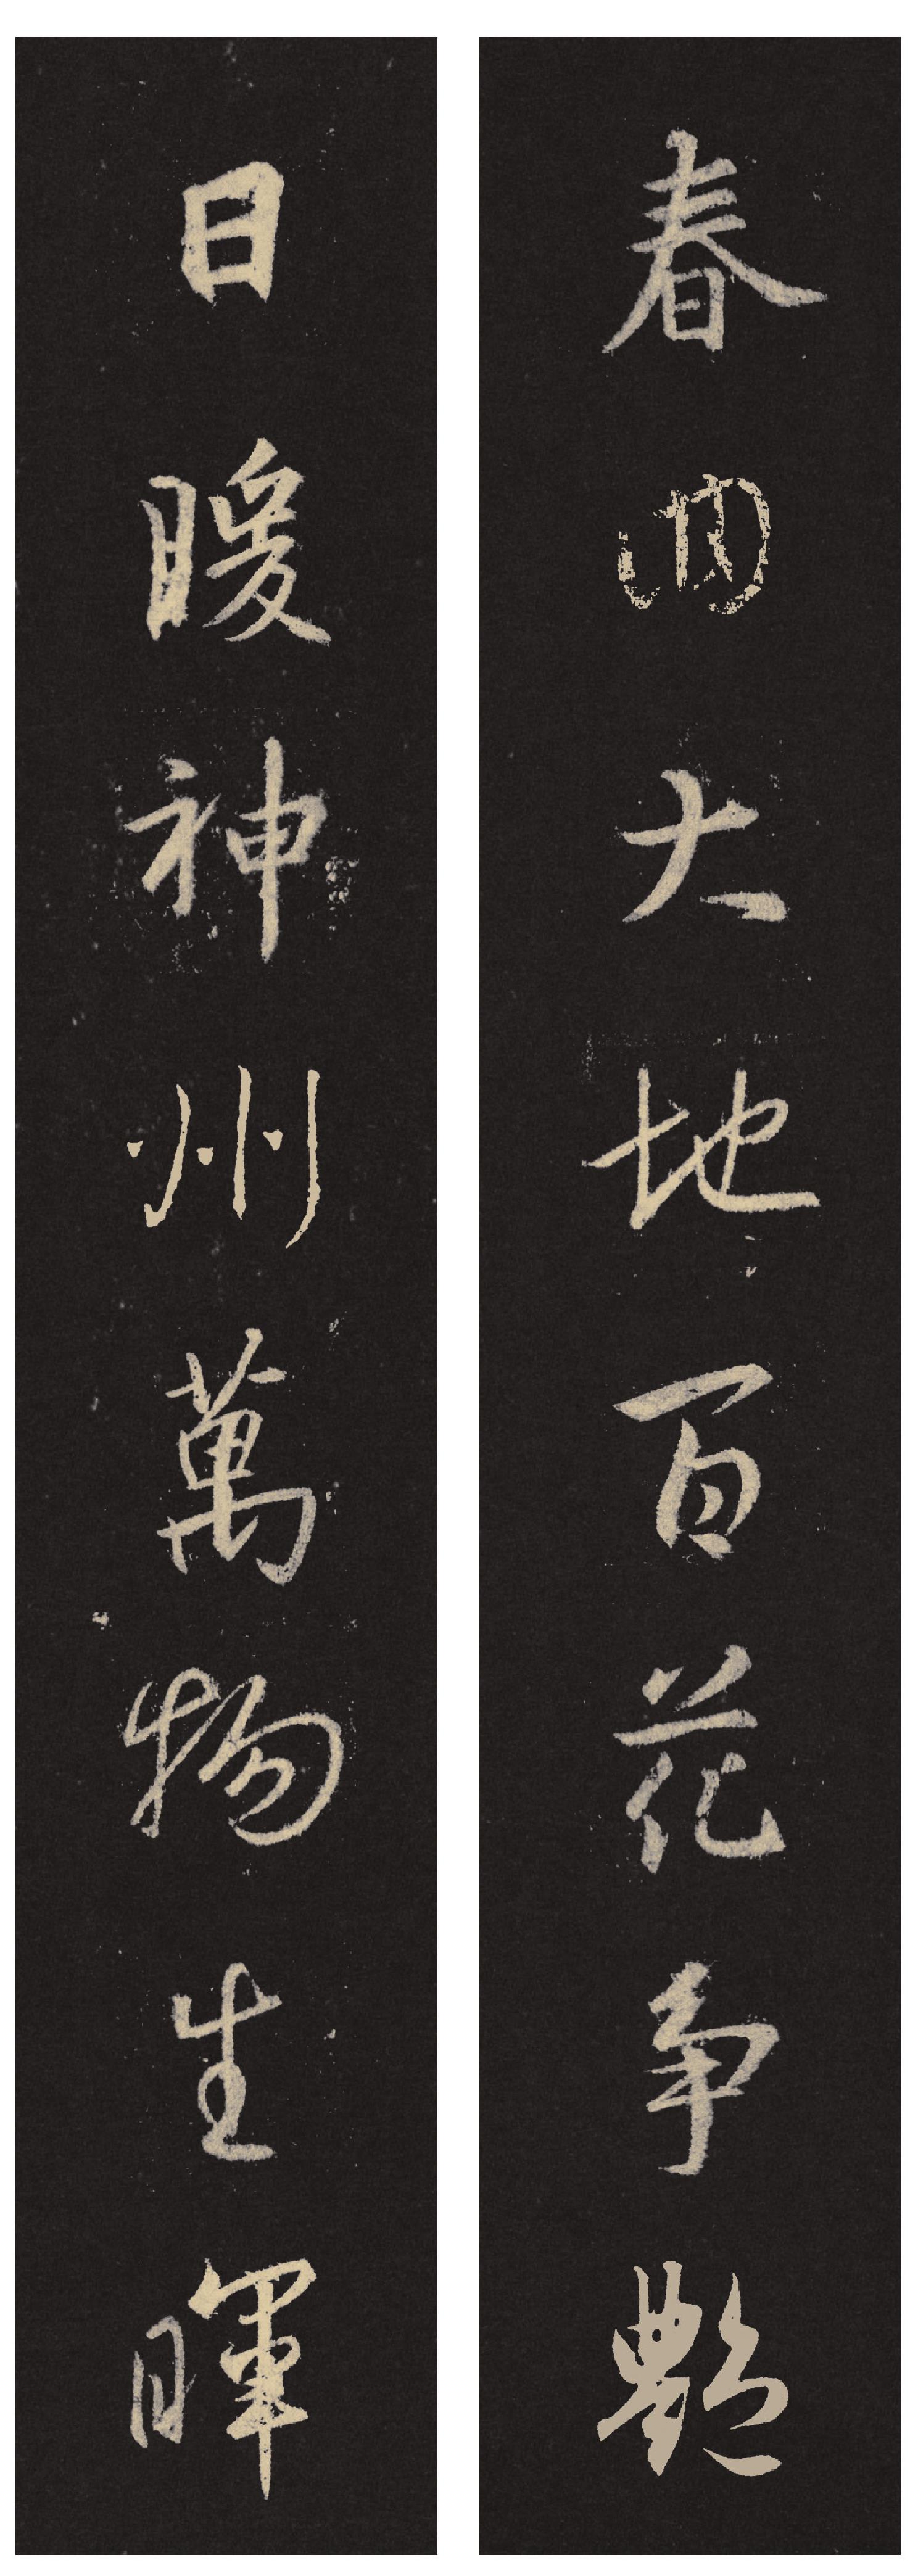 春回大地百花争艷
日暖神州萬物生暉